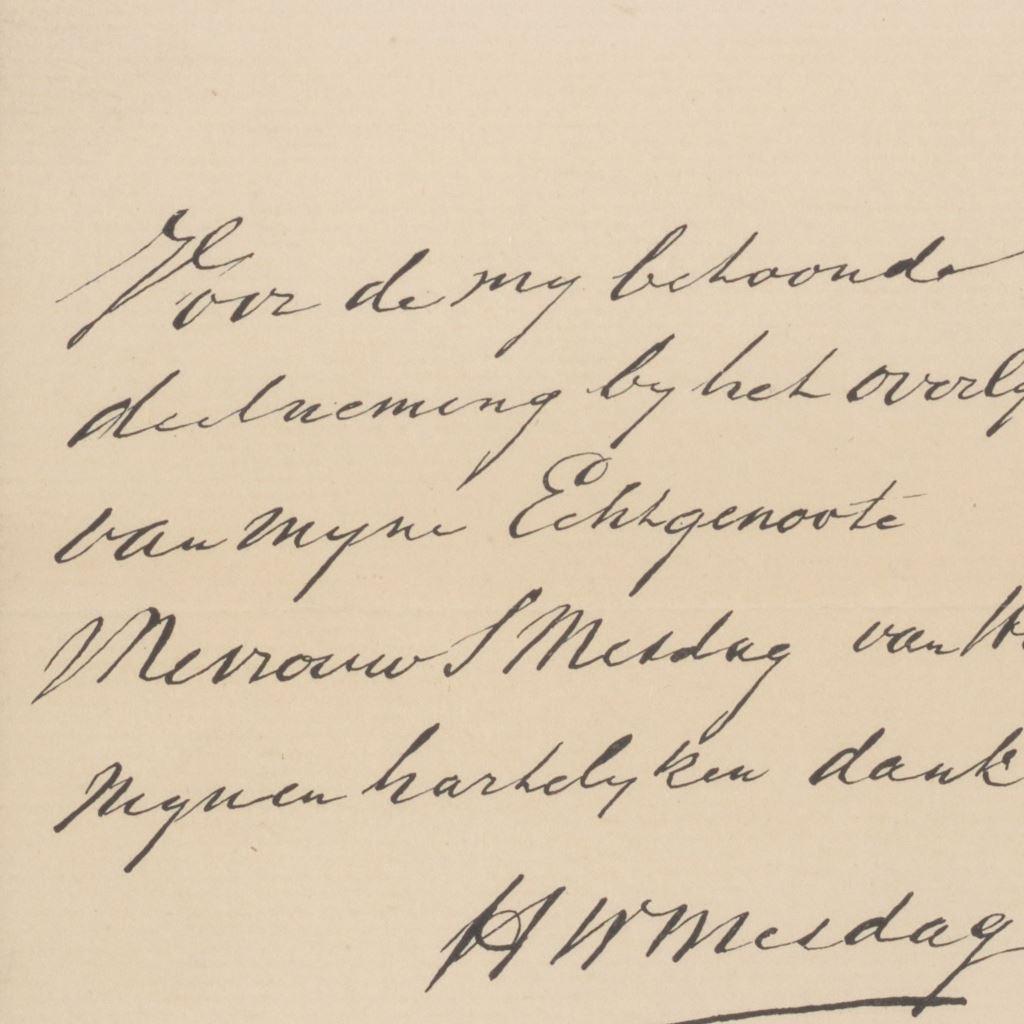 Voor de my betoonde
deelneming by het overly
van myne Echtgenoote
Mevrouw S Mesdag van
mynen hartelyken dank
H W Mesdag